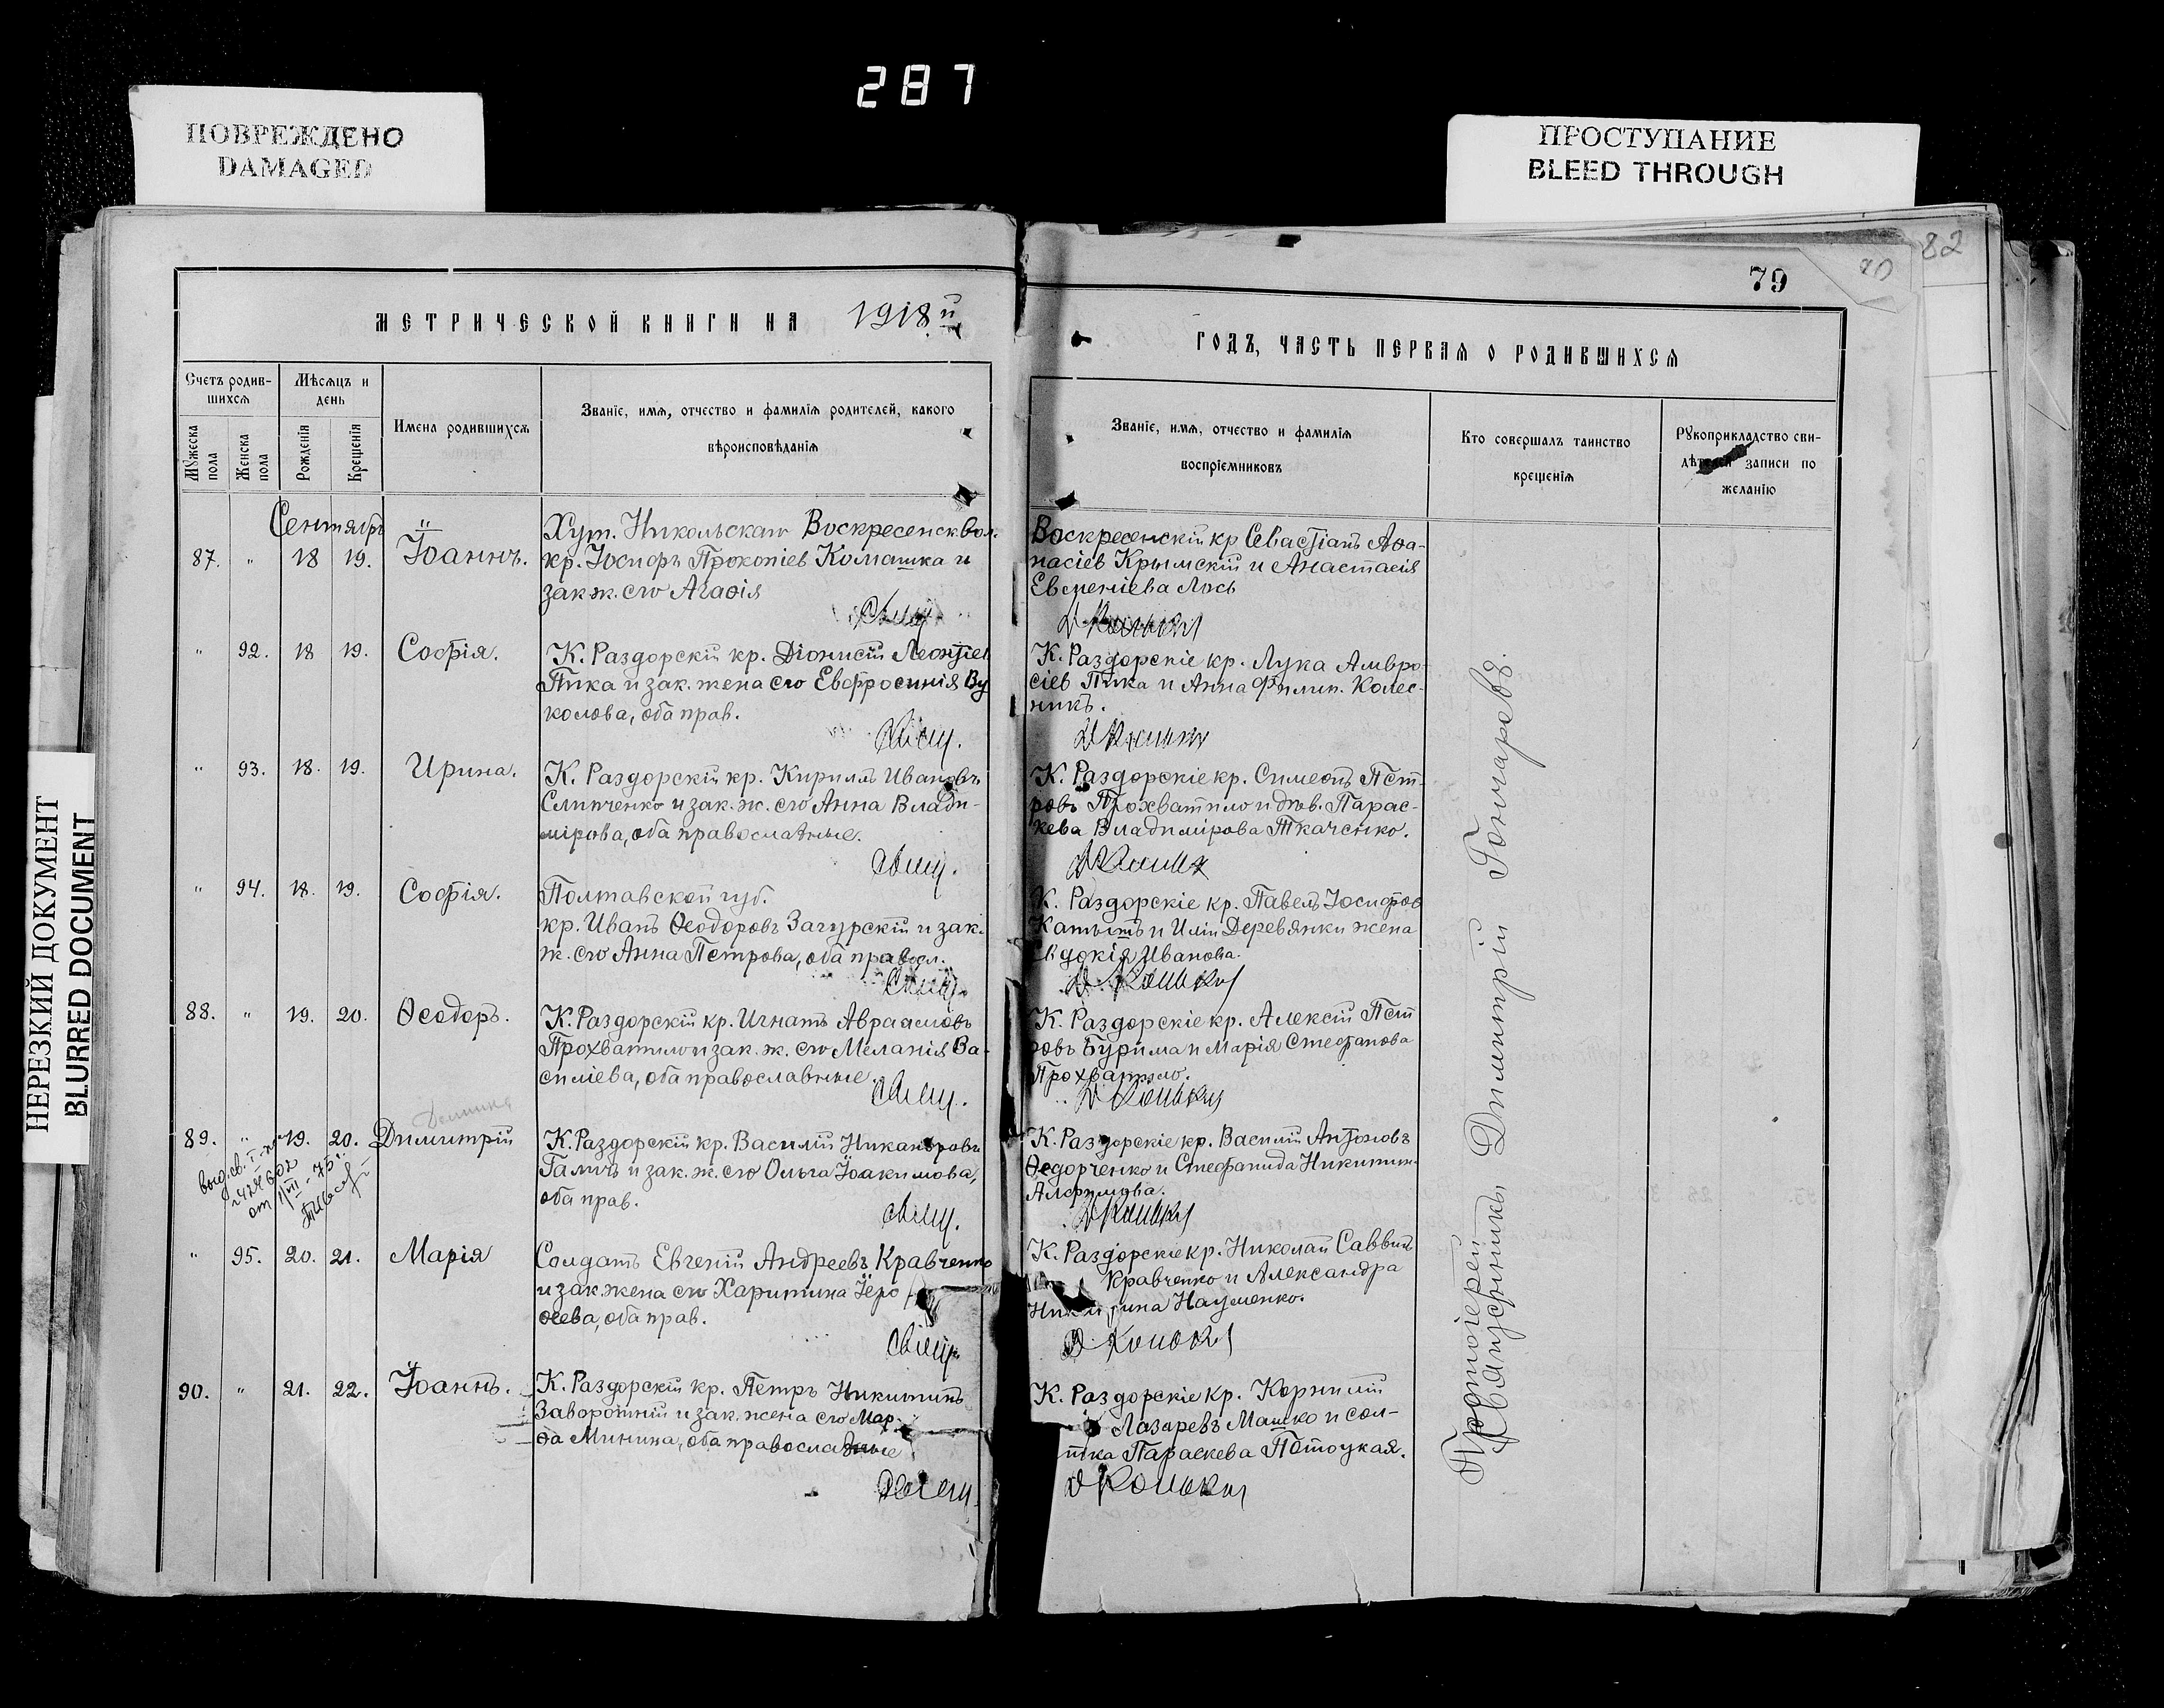 287
ПОВРЕЖДЕНО
DAMAGED
ПРОСТУПАНИЕ
BLEED THROUGH
НЕРЕЗКИЙ ДОКУМЕНТ
BLURRED DOCUMENT
82
79
МЕТРИЧЕСКОЙ КНИГИ НА 1918й
ГОДЪ, ЧАСТЬ ПЕРВАЯ О РОДИВШИХСЯ
Счетъ родив-
шихся
Мужеска пола
Женска пола
Мѣсяцъ и
день
Рожденія
Крещенія
Имена родившихся
Званіе, имя, отчество и фамилія родителей, какого
вѣроисповѣданія
Званіе, имя, отчество и фамилія
воспріемниковъ
Кто совершалъ таинство
крещенія
Рукоприкладство сви-
дѣтелей записи по
желанію
Сентябрь
87. " 18 19. Іоаннъ.
Хут. Никольскаго Воскресенск. вол.
кр. Іосифъ Прокопіев Комашка и
зак. ж. его Агаѳія
Воскресенскій кр Севастіанъ Аѳа-
насіев Крымскій и Анастасія
Евменіева Лось
" 92. 18 19. Софія.
К. Раздорскій кр. Діонисій Леонтіев
Пика и зак. жена его Евфросинія Ву
колова, оба прав.
К. Раздорскіе кр. Лука Амвро-
сіев Пика и Анна Филип. Колес-
никъ.
" 93. 18. 19. Ирина.
К. Раздорскій кр. Кириллъ Ивановъ
Слипченко и зак. ж. его Анна Влади-
мірова, оба православные.
К. Раздорскіе кр. Симеонъ Пет-
ровъ Прохватило и дѣв. Парас-
кева Владимірова Ткаченко.
" 94. 18. 19. Софія.
Полтавской губ.
кр. Иванъ Ѳеодоровъ Загурскій и зак.
ж. его Анна Петрова, оба правосл.
К. Раздорскіе кр. Павелъ Іосифов
и Иліи Деревянки жена
Евдокія Иванова.
88. " 19. 20. Ѳеодоръ.
К. Раздорскій кр. Игнатъ Авраамовъ
Прохватило и зак. ж. его Меланія Ва-
силіева, оба православные.
К. Раздорскіе кр. Алексій Пет
ровъ Бурима и Марія Стефанова
Прохватило.
89. " 19. 20. Димитрій
К. Раздорскій кр. Василій Никаноровъ
Галичъ и зак. ж. его Ольга Іоакимова,
оба прав.
К. Раздорскіе кр. Василій Антоновъ
Ѳедорченко и Стефанида Никитин.
Алфимова.
" 95. 20. 21. Марія
Солдатъ Евгеній Андреевъ Кравченко
и зак. жена его Харитина Іеро
ѳеева, оба прав.
К. Раздорскіе кр. Николай Саввинъ
Кравченко и Александра
Науменко.
90. " 21. 22. Іоаннъ.
К. Раздорскій кр. Петръ Никитинъ
Заворотній и зак. жена его Мар-
ѳа Минина, оба православные
К. Раздорскіе кр. Корнилій
Лазаревъ Машко и сол-
тка Параскева Потоцкая.
Протоіерей
Священникъ Димитрій Гончаревъ.